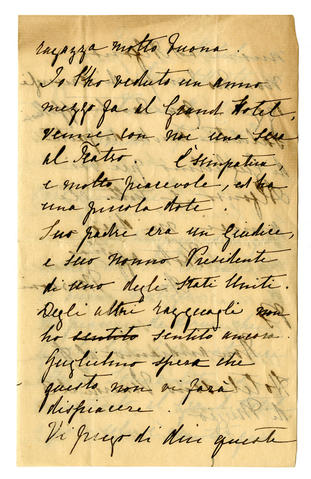 ragazza molto buona.
Io l'ho veduta un anno
mezzo fa al Grand Hotel,
venne con noi una sera
al Teatro. È simpatica
e molto piacevole, ed ha
una piccola dote
Suo padre era un Giudice,
e suo nonno Presidente
di uno degli Stati Uniti.
Degli altri ragguagli non
ho sentito sentito ancora.
Guglielmo spera che
questo non vi farà
dispiacere
Vi prego di dire queste